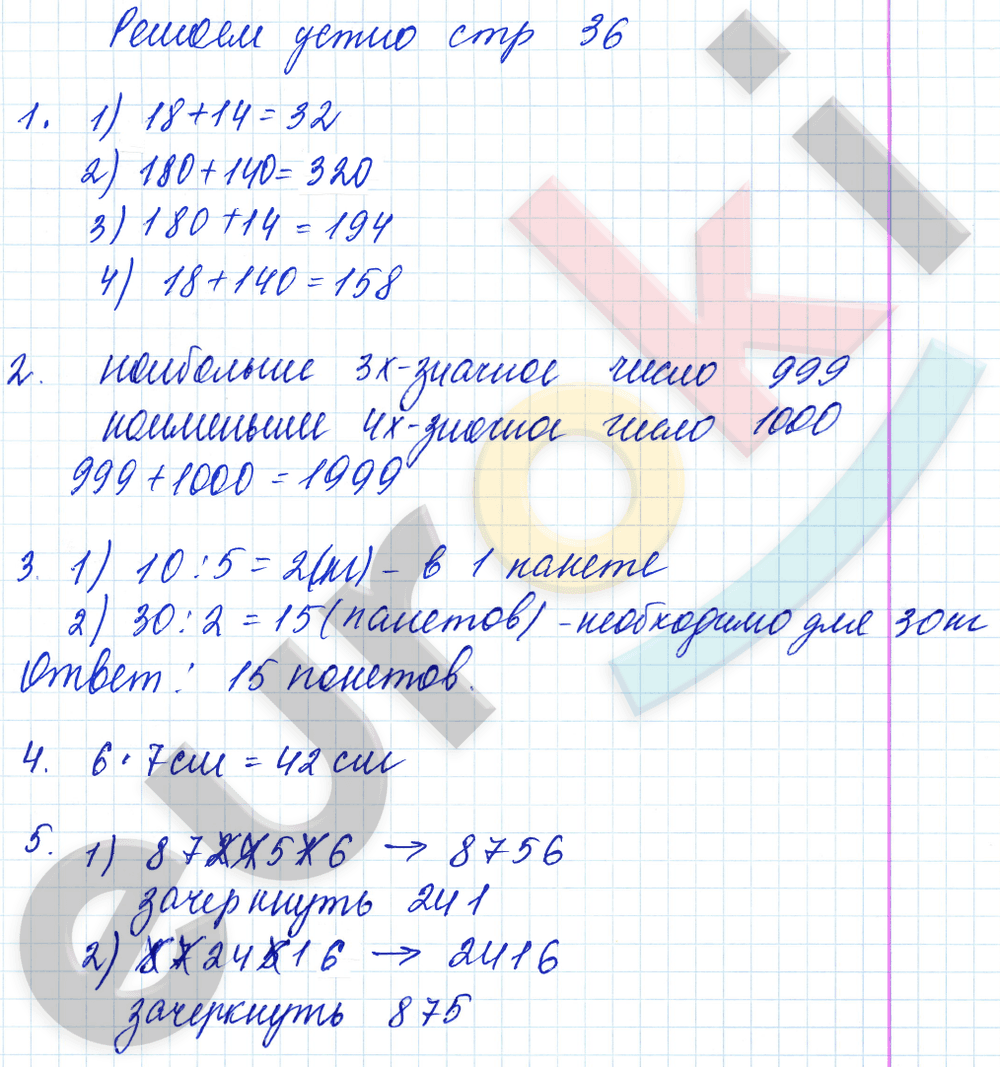 Решаем устно стр 36
1. 1) 18+14=32
2) 180+140=320
3) 180+14=194
4) 18+140=158
2. наибольшее 3х-значное число 999
наименьшее 4х-значное число 1000
999+1000=1999
3. 1) 10:5=2(кг)- в 1 пакете
2) 30:2=15(пакетов) -необходимо для 30кг
Ответ: 15 пакетов.
4. 6·7см=42см
5. 1) 8724516 → 8756
зачеркнуть 241
2) 8724516 → 2416
зачеркнуть 875
euroki